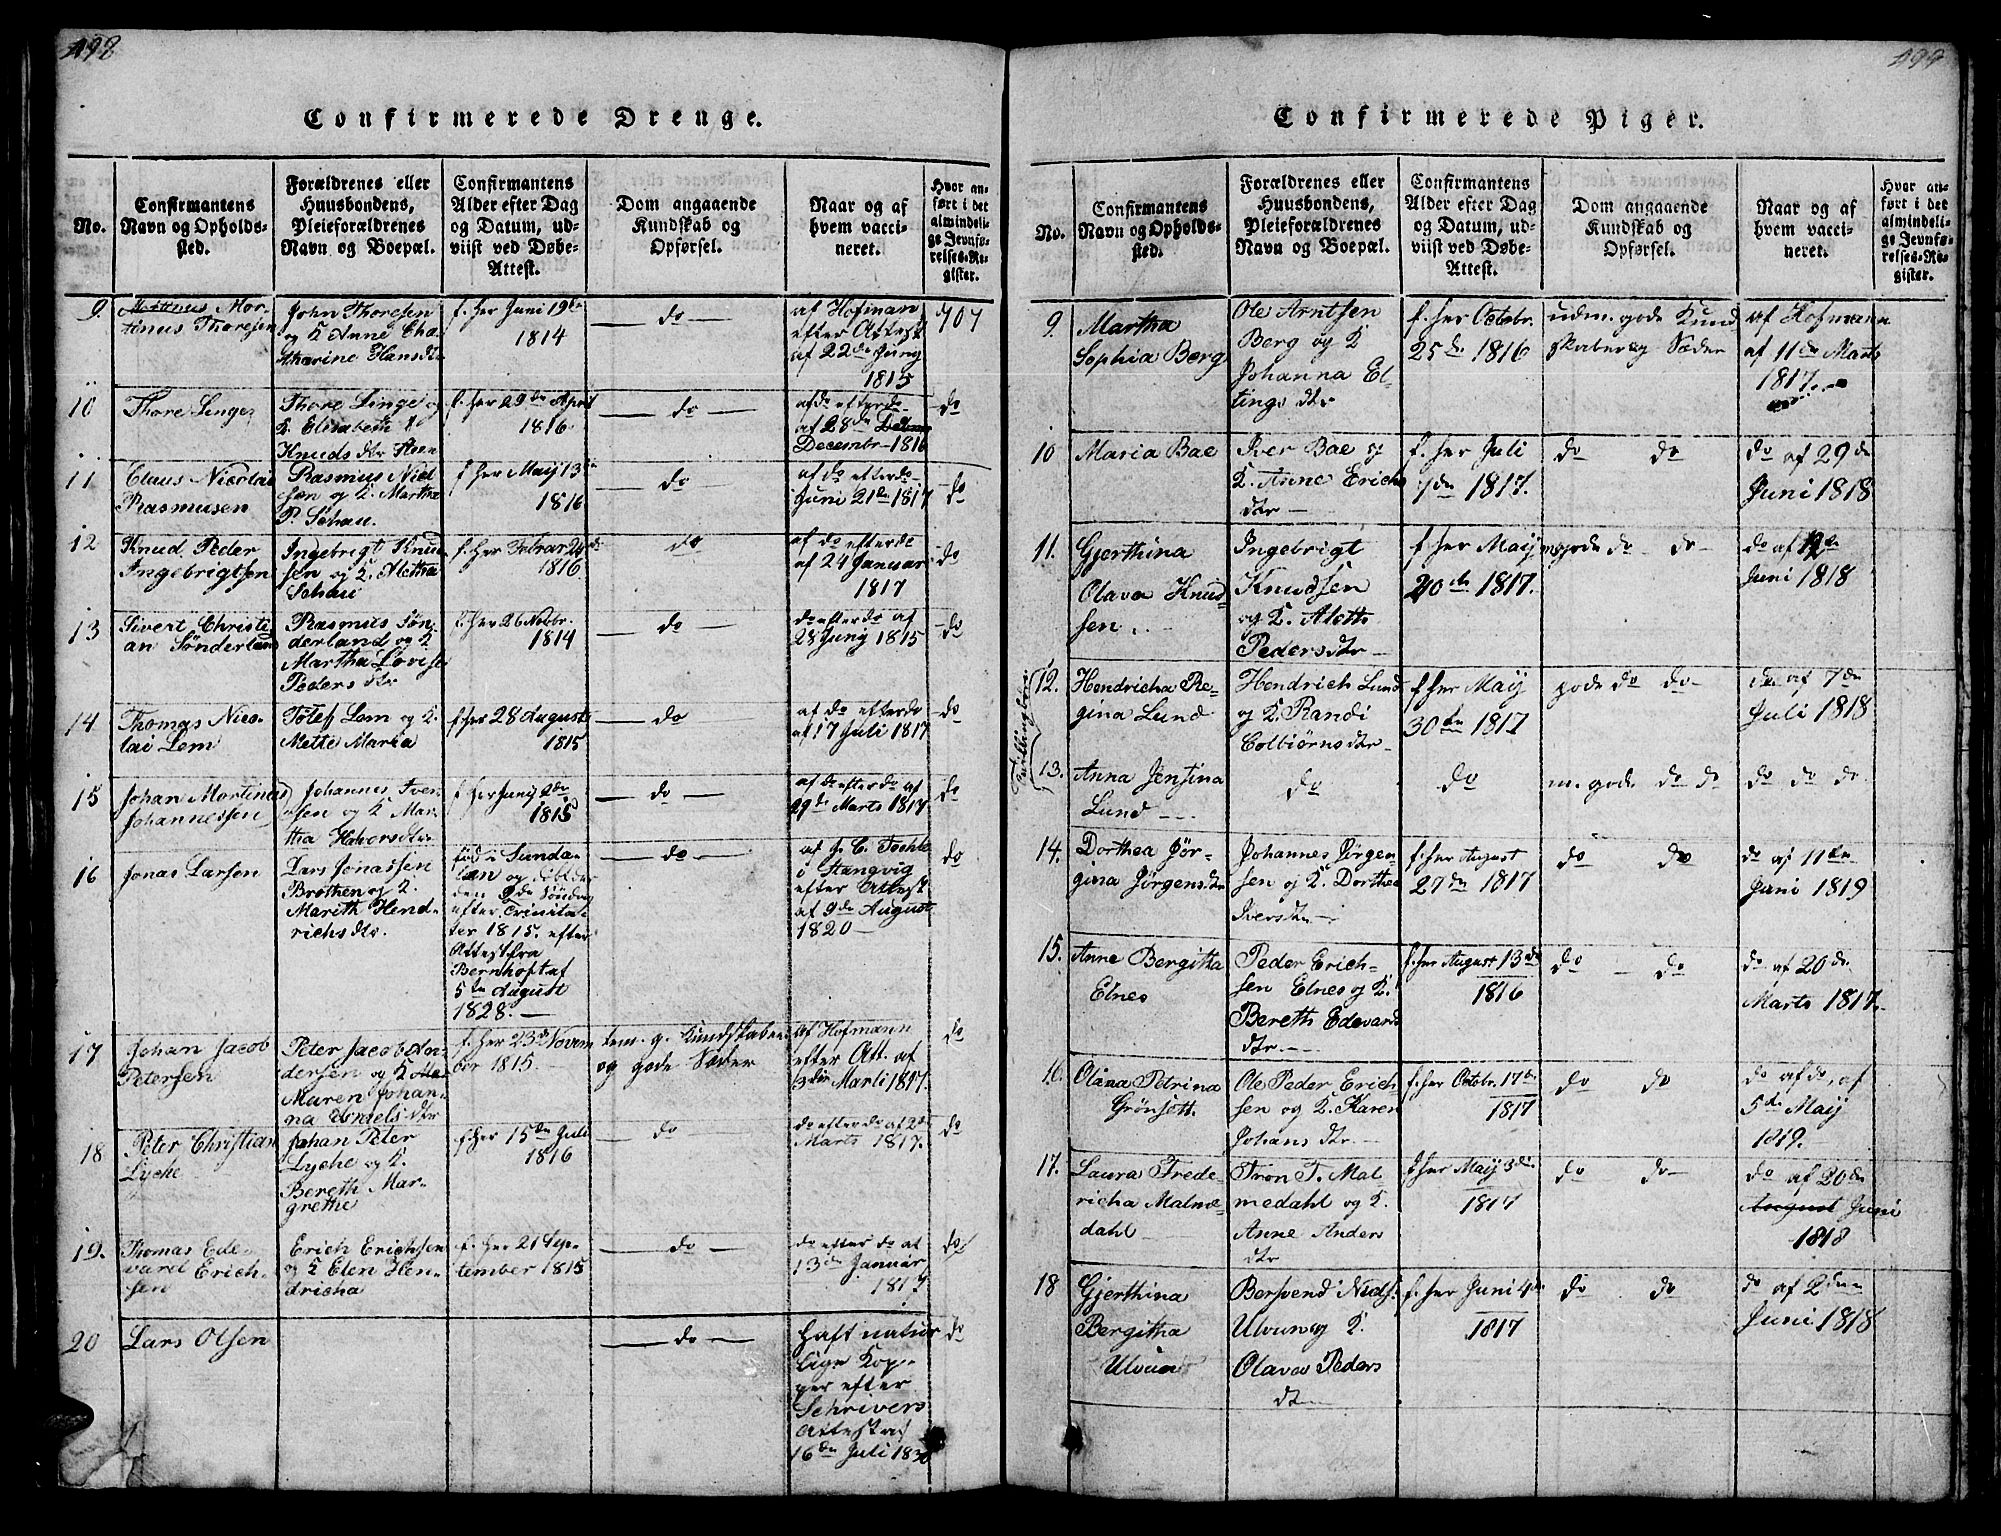 498
Confirmerede Drenge.
No.
Confirmantens
Navn og Opholds-
sted.
Forældrenes eller
Huusbondens,
Pleieforældrenes
Navn og Boepæl.
Confirmantens
Alder efter Dag
og Datum, ud-
viist ved Døbe-
Attest.
Dom angaaende
Kundskab og
Opførsel.
Naar og af
hvem vacci-
neret.
Hvor an-
ført i det
almindeli-
ge Jevnfø-
relses-Re-
gister.
9
Mor-
tinus Thoresen
John Thoresen
og K Anne Cha
tharine Hansdtr
f. her Juni 19de
1814
do
af Hofman
efter Attest
af 22de Juny
1815
707
10
Thore Linge
Thore Linge og
K. Elisabeth
Knuds dtr
f. her 29de April
1816
do
af do efter do
af 28de
Decembr 1816
do
11
Claus Nicolai
Rasmusen
Rasmus Niel
sen og K. Martha
P. Schau.
f her Maij 13de
1816
do
af do efter do
Juni 21de 1817
do
12
Knud Peder
Ingebrigtsen
Ingebrigt Knud
sen og K. Aletha
Schau
f. her Februar 24de
1816
do
af do efter do
af 24 Januar
1817
do
13
Sivert Christi
an Sønderland
Rasmus Søn
derland og K
Martha Lovise
Peders dtr
f. her 26 Novbr.
1814
do
do efter do af
28 Juny 1815
do
14
Thomas Nico-
lai Lem
Tølef Lem og K.
Mette Maria
f her 28 August
1815
do
af do efter do
af 17 Juli 1817
do
15
Johan Martinus
Johannessen
Johannes Iver
sen og K Mar-
tha Halvorsdtr
f her Juny 2de
1815
do
af do efter do af
29de Marts 1817
do
16
Jonas Larsen
Lars Jonassen
Brøthen og K.
Marith Hend-
richsdtr.
fød i Sunda-
len og døbt
den 9de Søndag
efter Trinita-
ter 1815. efter
Attest fra
Bernhoft af
5te August
1828.
do
af J. C.
i Stangvig
efter Attest
af 9de August
1820
do
17
Johan Jacob
Petersen
Peter Jacob An-
dersen og K
Maren Johan-
na Israels dtr
f. her 23de Novem
ber 1815.
tem. g. Kundskaber
og gode Sæder
af Hofmann
efter Att. af
3die Marti 1817.
do
18
Peter Christian
Lyche
Johan Peter
Lyche og K.
Bereth Mar-
grethe
f. her 15de Juli
1816
do
do efter do af 2de
Marts 1817.
do
19.
Thomas Ede-
vard Erich-
sen
Erich Erichsen
og K Elen Hen-
dricha
f. her 21 Sep-
tember 1815
do
do efter do af
13de Januar
1817
do
20
Lars Olsen
do
haft natur
lige Kop-
per efter
Schrivers
Attest af
16de Juli 1830
do
499
Confirmerede Piger.
No.
Confirmantens
Navn og Opholds-
sted.
Forældrenes eller
Huusbondens,
Pleieforældrenes
Navn og Boepæl.
Confirmantens
Alder efter Dag
og Datum, ud-
viist ved Døbe-
Attest.
Dom angaaende
Kundskab og
Opførsel.
Naar og af
hvem vacci-
neret.
Hvor an-
ført i det
almindeli-
ge Jevnfø-
relses-Re-
gister.
9
Martha
Sophia Berg
Ole Arntsen
Berg og K
Johanna El-
lings dtr
f. her Octobr.
25de 1816
udm. gode Kund
skaber og Sæder
af Hofmann
af 11de Marts
1817.
10
Maria Bae
Iver Bae og
K. Anne Erichs
dtr
f. her Juli
7de 1817.
do do
do af 29de
Juni 1818
11.
Gjerthina
Olava Knud-
sen
Ingebrigt
Knudsen
og K. Aleth
Pedersdtr
f her Maij
20de 1817.
m gode do do
do af 12de
Juni 1818
Tvillingbørn
12.
Hendricha Re-
gina Lund
Hendrich Lund
og K. Randi
Colbiørnsdtr
f her Maij
30de 1817
gode do do
do af 7de
Juli 1818
13.
Anna Jensina
Lund
do
do
m. gode do do
do do do
14.
Dorthea Jør-
gina Jørgensdtr
Johannes Jørgen-
sen og K. Dorthea
Iversdtr
f. her August
27de 1817
do do
do af 11de
Juni 1819
15.
Anne Bergitha
Elnes
Peder Erich-
sen Elnes og K.
Bereth Edevards
dtr.
f. her August 13de
1816
do do
do af 20de
Marts 1817.
16.
Olina Petrina
Grønsett.
Ole Peder Erich-
sen og K. Karen
Johans dtr.
f. her Octobr. 17de
1817
do do
do af do, af
5te Maij
1819.
17.
Laura Frede-
richa Malme-
dahl
Tron T. Mal-
medahl og K.
Anne Anders
dtr
f her Maij 3de
1817
do do
do af 20de
August Juni
1818
18
Gjerthina
Bergitha
Ulvun
Bersvend Niels.
Ulvun og K.
Olava Peders
dtr
f. her Juni 4de
1817
do do
do af 2den
Juni 1818